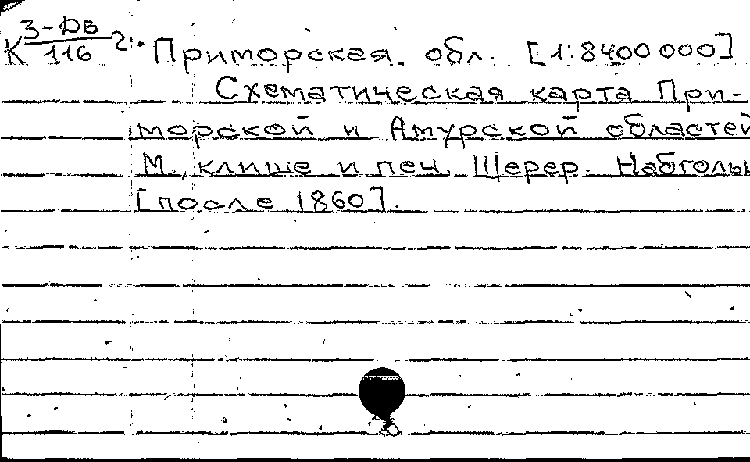 К 3-ДБ/116 2. Приморская. обл. [1:8400000]
Схематическая карта При-
морской и Амурской областей
М., клише и печ. Щерер. Набгольц
[после 1860].